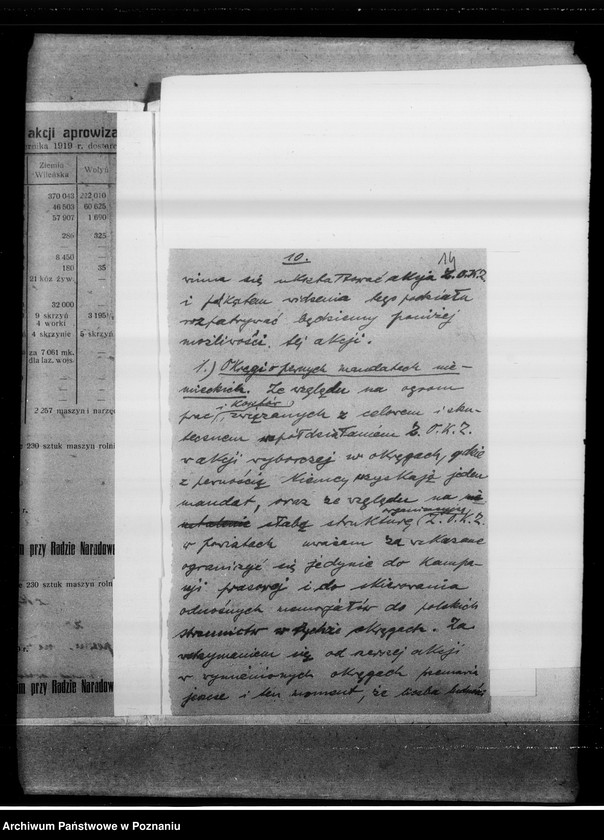 akcji aprowiza
1919 r. dostarc
Ziemia
Wileńska
Wołyń
370 043
222 010
46 503
60 625
57 907
1 690
286
325
8 450
180
35
21 kóz żyw.
32 000
9 skrzyń
3 195
4 worki
4 skrzynie
5 skrzyń
za 7 061 mk.
dla laz. wojs.
2 257 maszyn i narzę
230 sztuk maszyn roln
m przy Radzie Narodowe
e 230 sztuk maszyn roln
im przy Radzie Narodow
10.
14
winna się ukształtować akcja Z.O.K.Z.
i pod kątem widzenia tego podziału
rozpatrywać będziemy poniżej
możliwości tej akcji.
1.) Okręgi o pewnych mandatach nie-
mieckich. Ze względu na ogrom
prac i kosztów związanych z celowem i sku-
tecznem współdziałaniem Z.O.K.Z.
w akcji wyborczej w okręgach, gdzie
z pewnością Niemcy uzyskają jeden
mandat, oraz ze względu na
słabą strukturę organizacyjną Z.O.K.Z.
w powiatach uważam za wskazane
ograniczyć się jedynie do kampa-
nji prasowej i do skierowania
odnośnych memorjałów do polskich
stronnictw w tychże okręgach. Za
wstrzymaniem się od szerszej akcji
w wymienionych okręgach przemawia
jeszcze i ten moment, że liczba